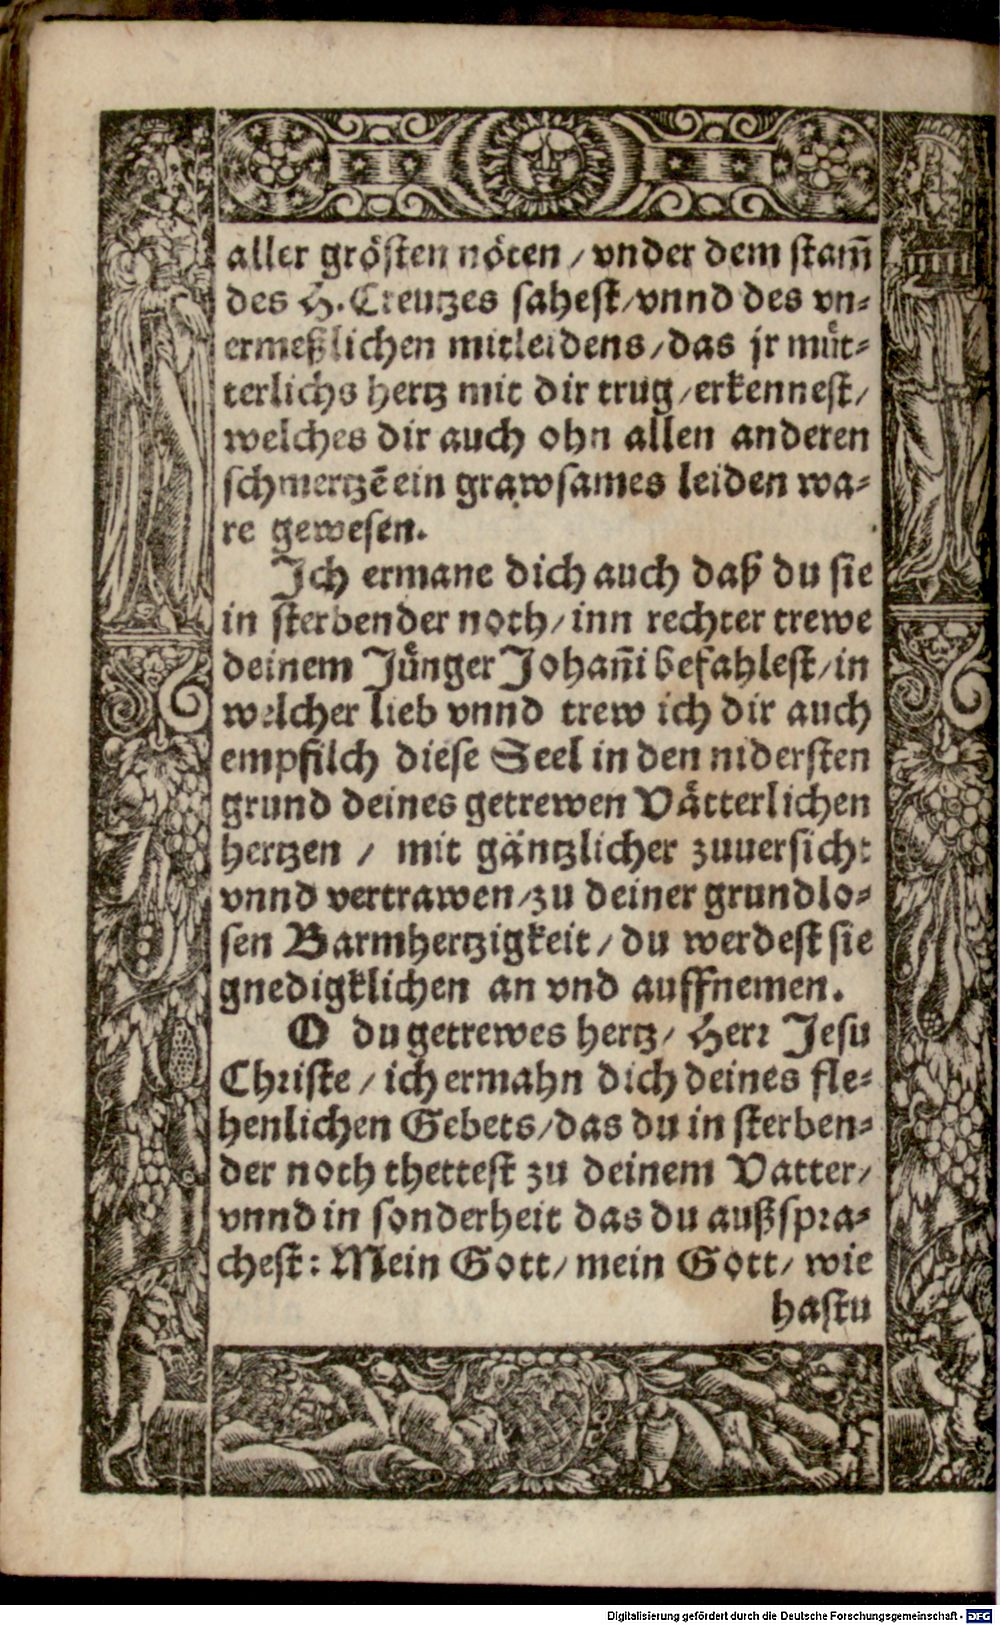 aller grösten nöten / vnder dem stam̃
des H. Creutzes sahest / vnnd des vn⸗
ermeßlichen mitleidens / das jr müt⸗
terlichs hertz mit dir trug / erkennest /
welches dir auch ohn allen anderen
schmertzē ein grawsames leiden wa⸗
re gewesen.
Ich ermane dich auch daß du sie
in sterbender noth / inn rechter trewe
deinem Jünger Johañi befahlest / in
welcher lieb vnnd trew ich dir auch
empfilch diese Seel in den nidersten
grund deines getrewen Vätterlichen
hertzen / mit gäntzlicher zuuersicht
vnnd vertrawen / zu deiner grundlo⸗
sen Barmhertzigkeit / du werdest sie
gnedigklichen an vnd auffnemen.
O du getrewes hertz / Herr Jesu
Christe / ich ermahn dich deines fle⸗
henlichen Gebets / das du in sterben⸗
der noth thettest zu deinem Vatter /
vnnd in sonderheit das du außspra⸗
chest: Mein Gott / mein Gott / wie
hastu
Digitalisierung gefördert durch die Deutsche Forschungsgemeinschaft - DFG